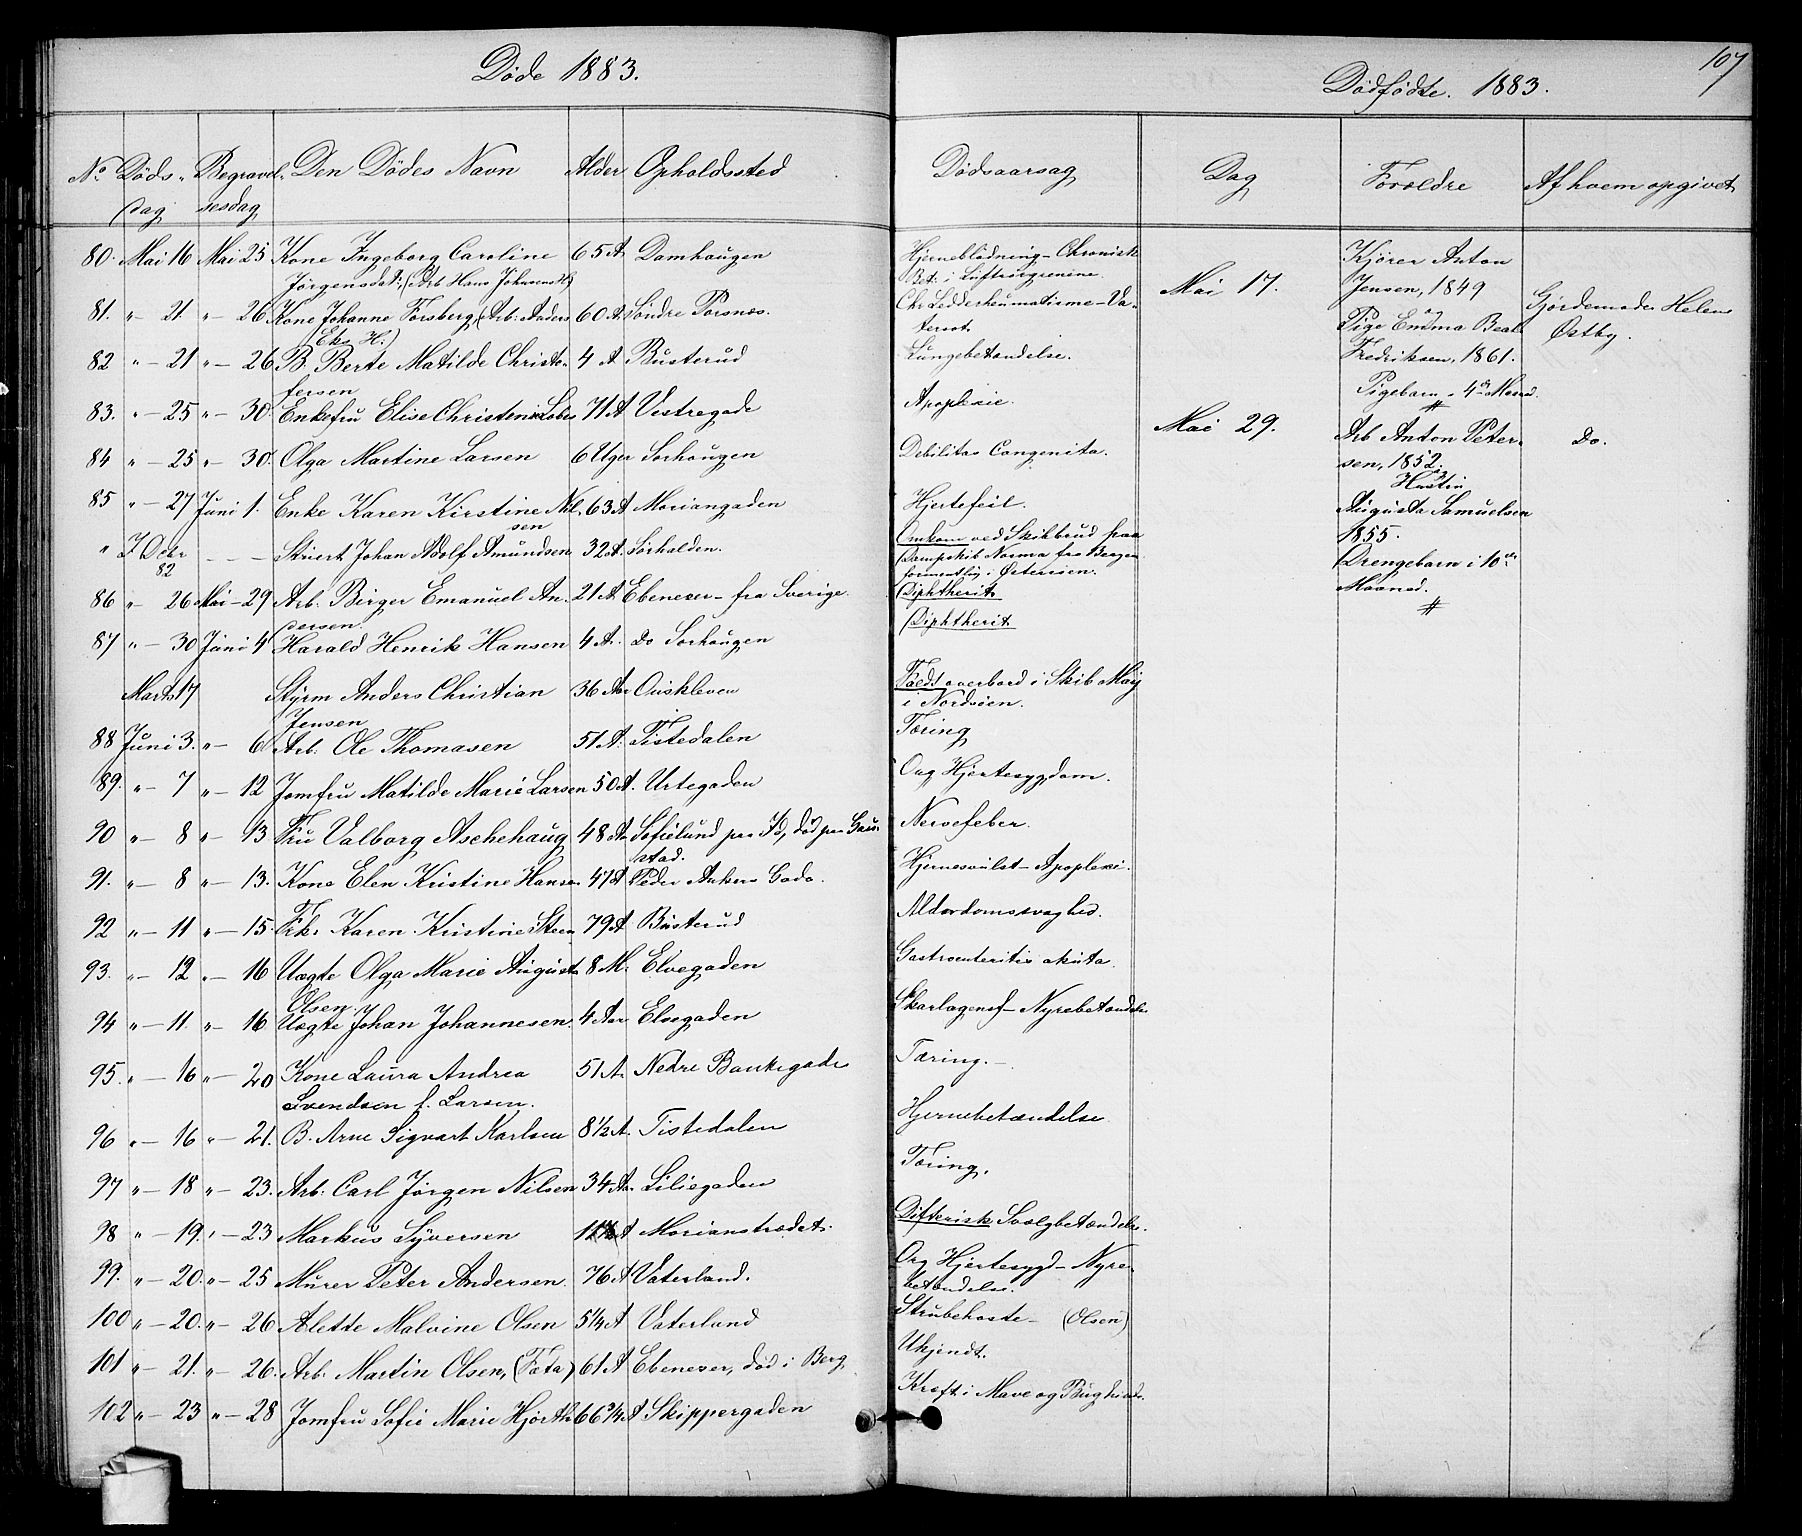 Døde 1883.
No Døds- Begravel- Den Dødes Navn Alder Opholdssted
dag sesdag
80. Mai 16 Mai 25 Kone Ingeborg Caroline 65 A Damhaugen
Jörgensdat: (Arb Hans Johnsens H)
81. " - 21. " - 26 Kone Johanne Forsberg, (Arb: Anders 60 A. Söndre Porsnes.
Eks H:)
82 " - 21 " - 26 B. Berte Matilde Christo- 4 A Busterud
fersen
83. " - 25 " - 30. Enkefru Elise Christine 71 A Vestregade
84 " - 25 " - 30. Olga Martine Larsen 6 Uger Sorhaugen
85 " - 27 Juni 1. Enke Karen Kirstine Nil- 63 A Moriangaden
sen
" 7 Octr - - Stüert Johan Adolf Amundsen 32 A. Sörhalden.
82
86 " - 26 Mai - 29 Arb. Birger Emanuel An- 21 A. Ebeneser - fra Sverige.
dersen.
87 " - 30 Juni 4 Harald Henrik Hansen 4 A. Do Sorhaugen
Marts 17 Styrm Anders Christian 36 Aar Oriskleven
Jensen
88 Juni 3. " - 6 Arb. Ole Thomasen 51 A. Tistedalen
89. " - 7 " - 12 Jomfru Matilde Marie Larsen 50 A. Urtegaden
90 " - 8 " - 13 Fru Valborg Aschehaug 48 Aar Sofielund pr Id, död paa Gau-
stad.
91. " - 8 " - 13. Kone Elen Kristine Hansen 47 A Peder Ankers Gade.
92 " - 11 " - 15. Frk. Karen Kristine Steen 79 A Busterud
93. " - 12 " - 16 Uægte Olga Marie Augusta 8 M. Elvegaden
Olsen
94 " - 11. " - 16 Uægte Johan Johannesen. 4 Aar Elvegaden
95. " - 16 " - 20 Kone Laura Andrea 51 A. Nedre Bankegade
Svendsen f. Larsen.
96 " - 16 " - 21. B. Arne Sigvart Karlsen 8 1/2 A. Tistedalen
97 " - 18 " - 23. Arb. Carl Jörgen Nilsen 34 Aar Liliegaden
98 " - 19. " - 23 Markus Syversen A Morianstrædet.
99. " - 20. " - 25 Murer Peter Andersen. 76 A Vaterland.
100 " - 20. " - 26 Alette Malvine Olsen 5 1/4 A Vaterland
101 " - 21. " - 26. Arb. Martin Olsen, (Fæta) 61 A Ebeneser, död i Berg
102 " - 23 " - 28 Jomfru Sofie Marie Hjorth 66 3/4 A Skippergaden
107
Dödfödte. 1883.
Dödsaarsag Dag Forældre Af hvem opgivet
Hjerneblödning - Chronisk
Bet. i Luftrörgrenene.
Chr Ledderheumatisme - Va-
tersot.
Lungebetændelse.
Apoplexie.
Debilitas Congenita.
Hjertefeil.
Omkom ved Skibbrud paa
Dampskib Norma fra Bergen
formentlig i Östersöen.
Diphtherit
Diphtherit
Faldt overbord i Skib May
i Nordsöen.
Tæring
Org Hjertesygdom.
Nervefeber.
Hjernesvulst - Apoplexi.
Alderdomssvaghed.
Gastroenteritis akuta.
Skarlagensf - Nyrebetændelse
Tæring. -
Hjernebetændelse
Tæring.
Difterisk Svælgbetændelse.
Org Hjertesygd - Nyre-
betændelse.
Strubehoste - (Olsen)
Ukjendt.
Kræft i Mave og Bughinde.
Mai 17.
Kjörer Anton
Jensen, 1849
og
Pige Emma Beate
Fredriksen, 1861.
Pigebarn - 4de Maaned.
#
Gjordemoder Helene
Østby.
Mai 29.
Arb Anton Peter-
sen, 1852.
og
Hustru
Augusta Samuelsen
1855.
Drengebarn i 10de
Maaned.
#
Do.